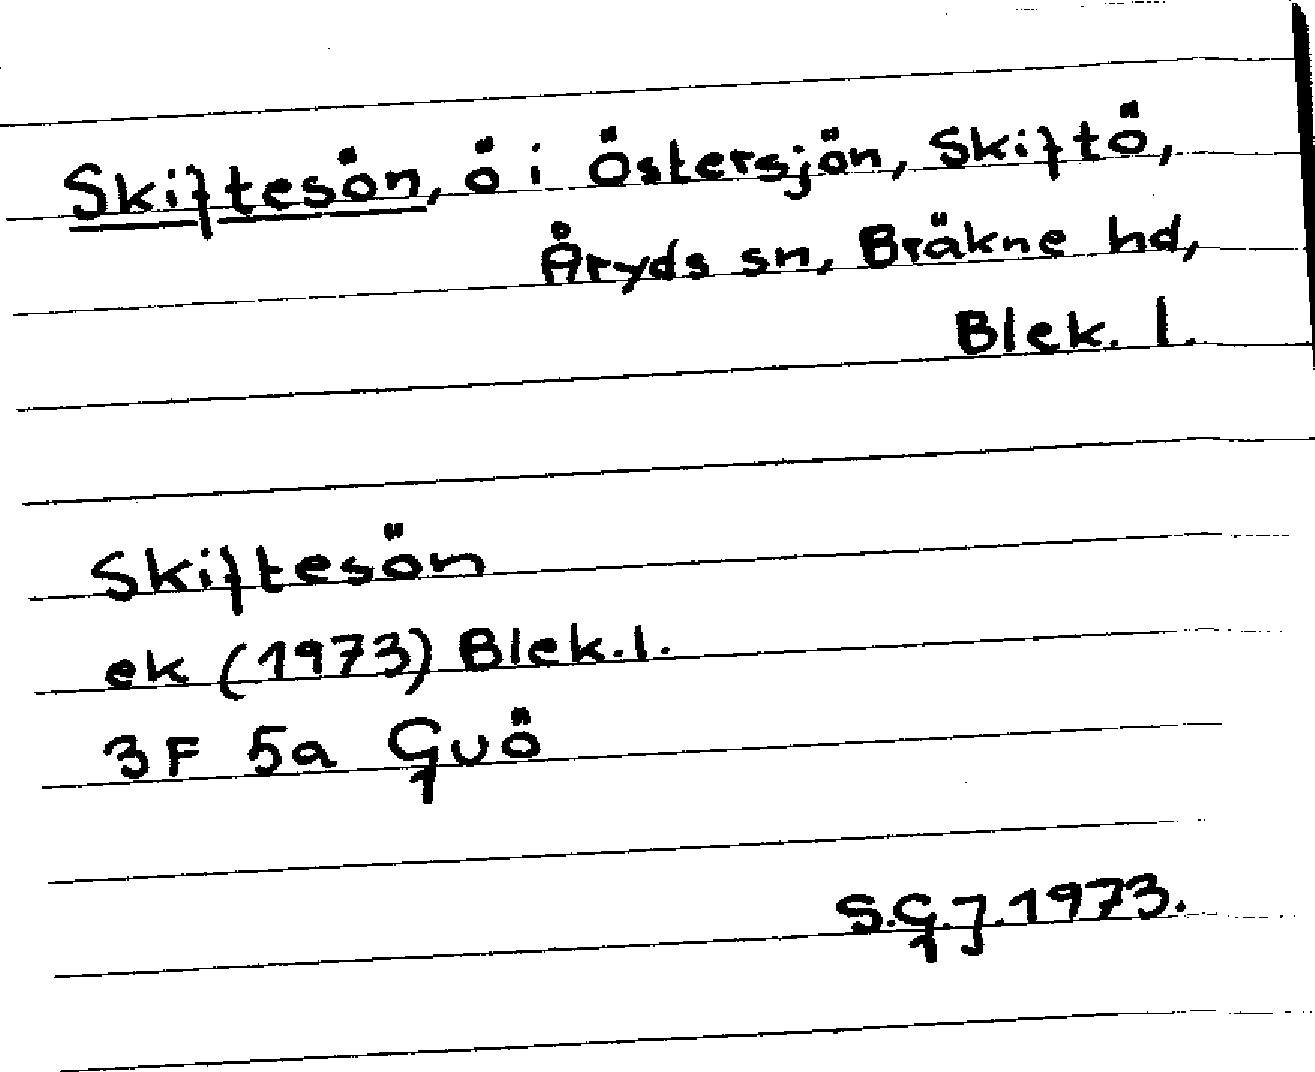 Skiftesön, ö i Östersjön, Skiftö,
Åryds sn, Bräkne hd,
Blek. l.
Skiftesön
ek (1973) Blek.l.
3F 5a Guö
S.G.J.1973.